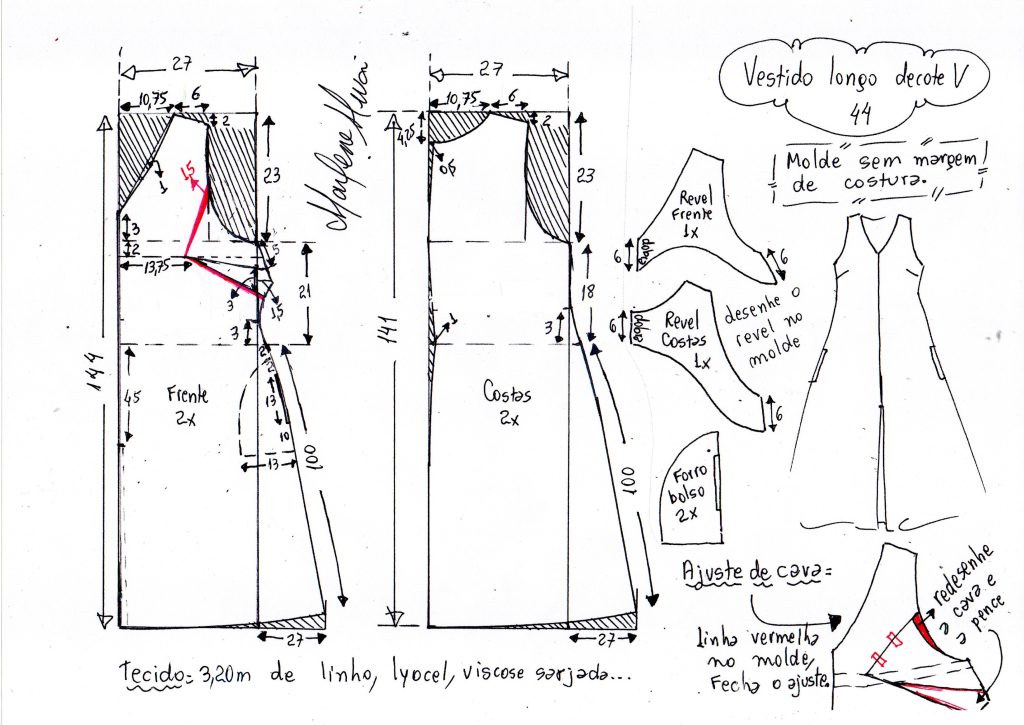 27
10,75
6
2
1
15
23
3
2
13,75
5
3
15
21
3
144
45
Frente
2x
2
12
13
10
13
100
27
Marlene Mukai
27
10,75
6
2
4,25
0,5
23
18
3
1
141
Costas
2x
100
27
Vestido longo decote V
44
Molde sem margem
de costura.
Revel
Frente
1x
dobra
6
6
Revel
Costas
1x
dobra
6
6
desenhe o
revel no
molde
Forro
bolso
2x
Ajuste de cava=
linha vermelha
no molde,
Fecha o ajuste.
redesenhe
a cava e
a pence
Tecido= 3,20m de linho, lyocel, viscose sarjada...